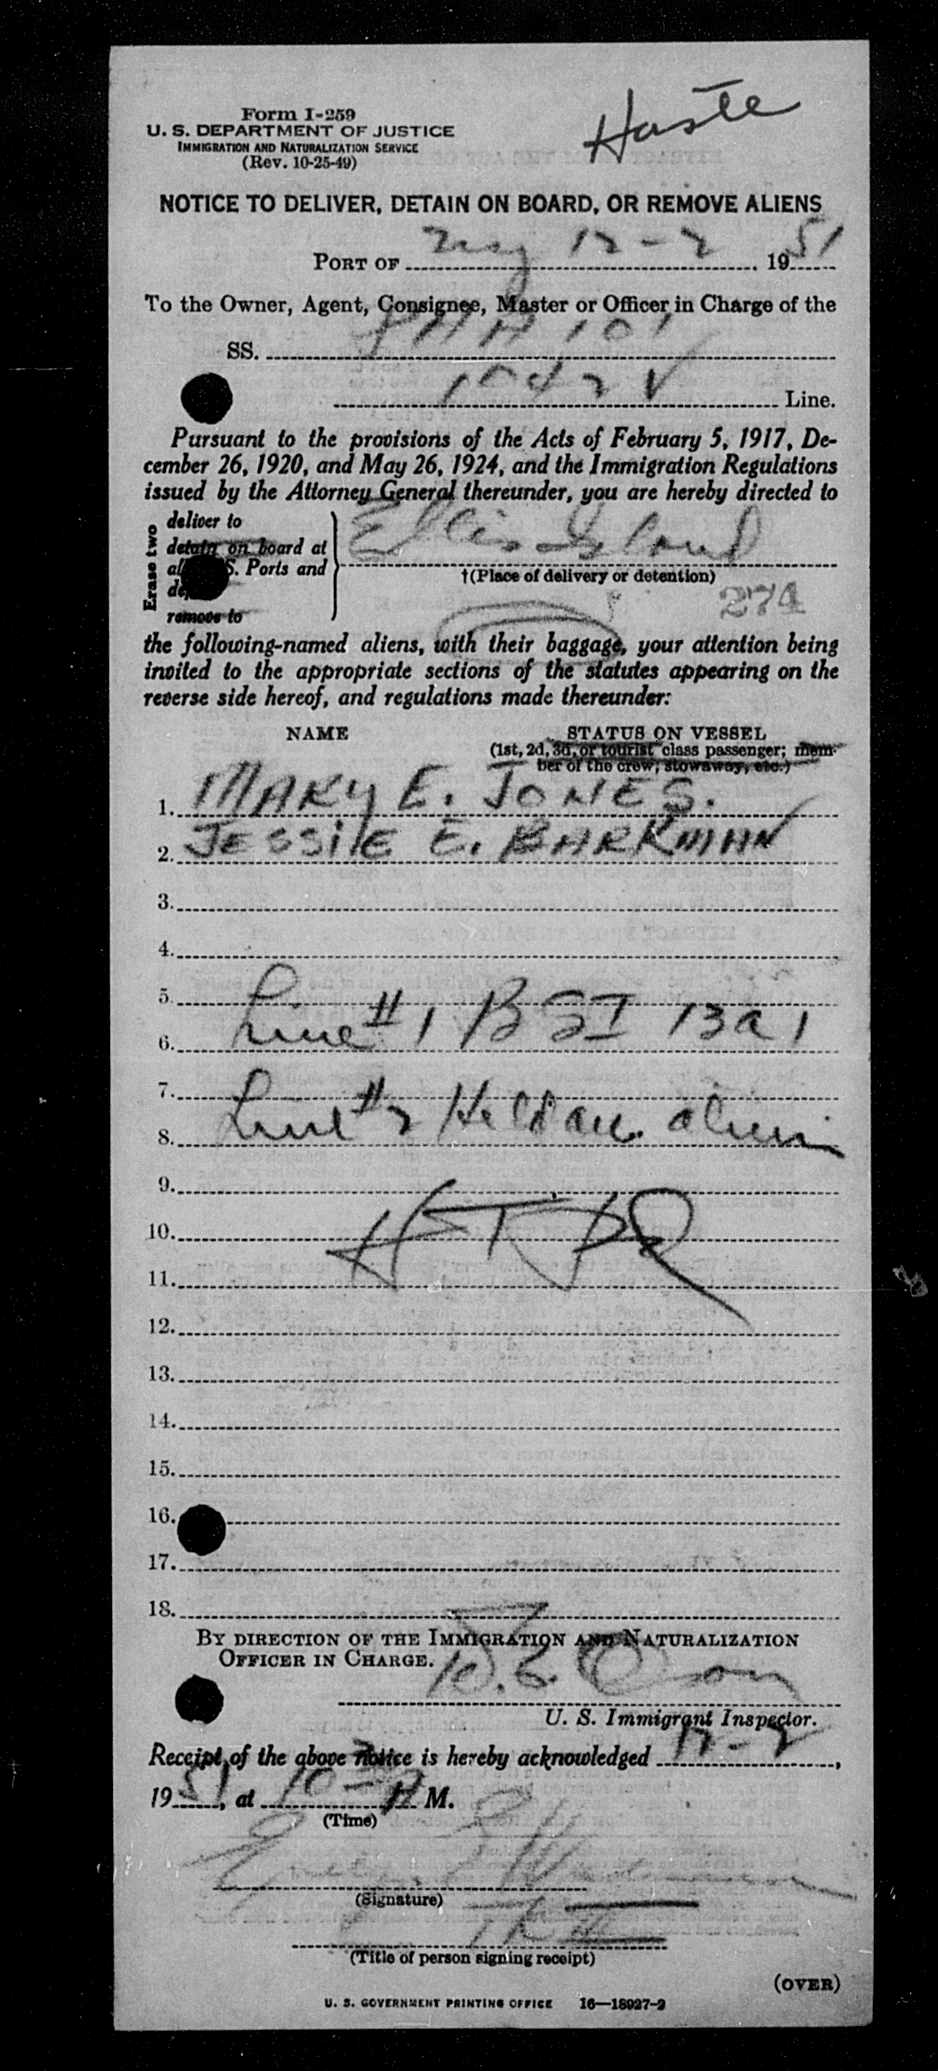 Form I-259
Haste
U. S. DEPARTMENT OF JUSTICE
IMMIGRATION AND NATURALIZATION SERVICE
(Rev. 10-25-49)
NOTICE TO DELIVER, DETAIN ON BOARD, OR REMOVE ALIENS
PORT OF 12-2, 1951
To the Owner, Agent, Consignee, Master or Officer in Charge of the
SS. PAA 101
1042 V Line.
Pursuant to the provisions of the Acts of February 5, 1917, De-
cember 26, 1920, and May 26, 1924, and the Immigration Regulations
issued by the Attorney General thereunder, you are hereby directed to
Erase two
deliver to
detain on board at
S. Ports and
remove to
Ellis Island
†(Place of delivery or detention)
274
the following-named aliens, with their baggage, your attention being
invited to the appropriate sections of the statutes appearing on the
reverse side hereof, and regulations made thereunder:
NAME STATUS ON VESSEL
(1st, 2d, 3d, or tourist class passenger; mem-
ber of the crew; stowaway, etc.)
1. MARY E. JONES.
2. JESSIE E. BARKMAN
3.
4.
5.
6. Line #1 BSI 13a1
7.
8. Line #2 alien
9.
10.
11.
12.
13.
14.
15.
16.
17.
18.
BY DIRECTION OF THE IMMIGRATION AND NATURALIZATION
OFFICER IN CHARGE.
U. S. Immigrant Inspector.
Receipt of the above notice is hereby acknowledged 12-2,
1951, at 10 A M.
(Time)
(Signature)
(Title of person signing receipt)
(OVER)
U. S. GOVERNMENT PRINTING OFFICE 16—18927-2